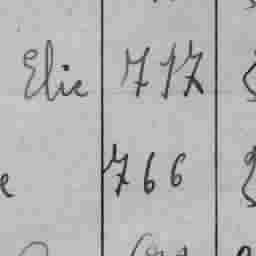 Elie 717
e 766